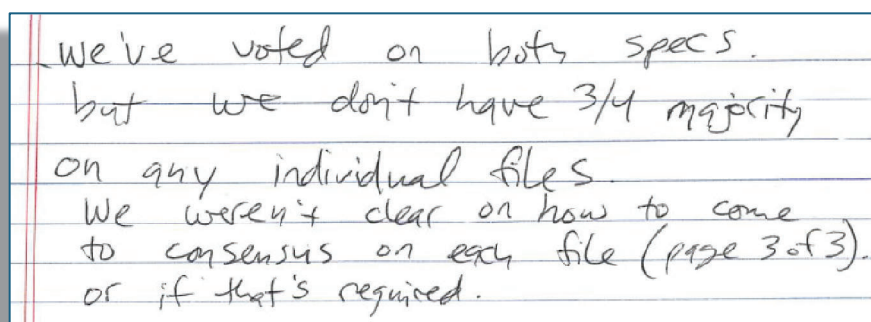 we've voted on both specs.
but we don't have 3/4 majority
on any individual files.
We weren't clear on how to come
to consensus on each file (page 3 of 3).
or if that's required.